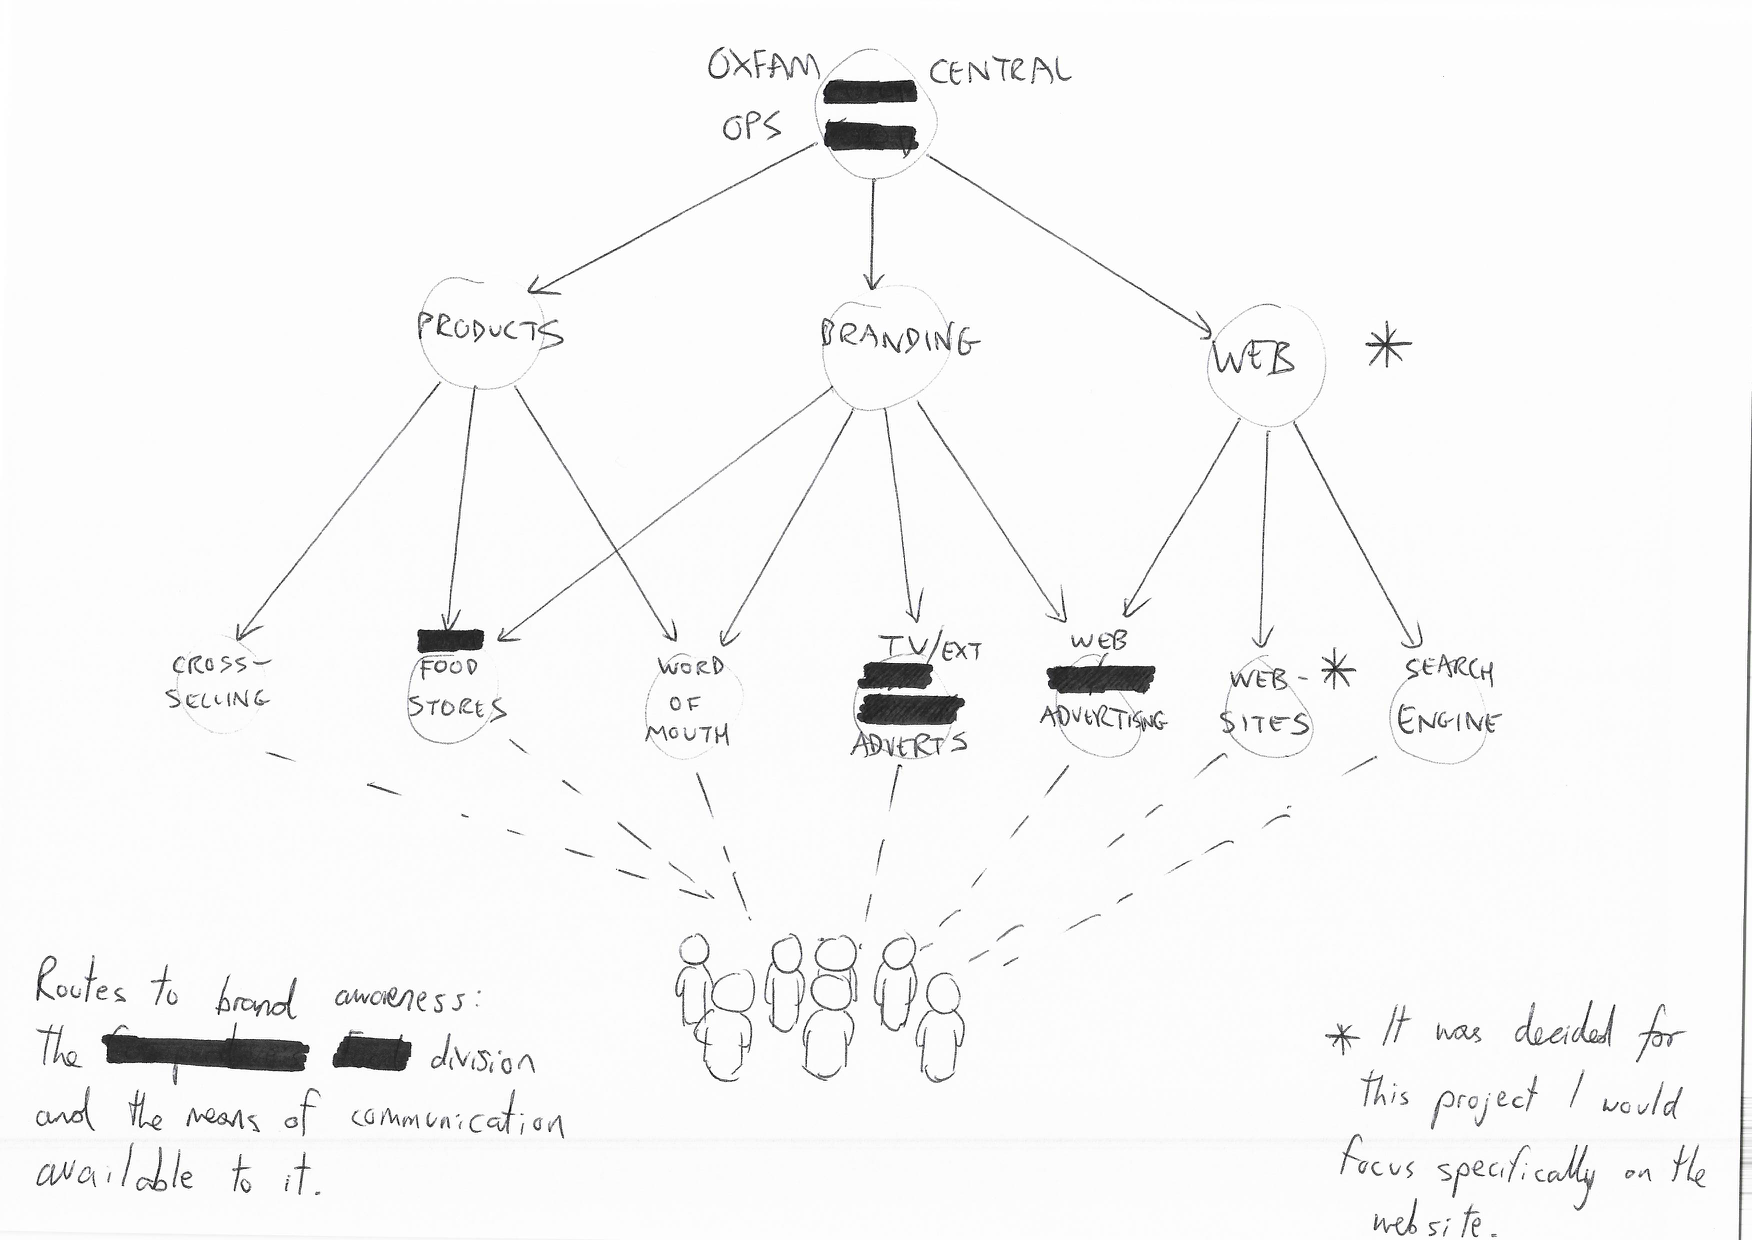 OXFAM CENTRAL
OPS
PRODUCTS
BRANDING
WEB *
CROSS-
SELLING
FOOD
STORES
WORD
OF
MOUTH
TV/EXT
ADVERTS
WEB
ADVERTISING
WEB- *
SITES
SEARCH
ENGINE
Routes to brand awareness:
the division
and the means of communication
available to it.
* It was decided for
this project I would
focus specifically on the
website.